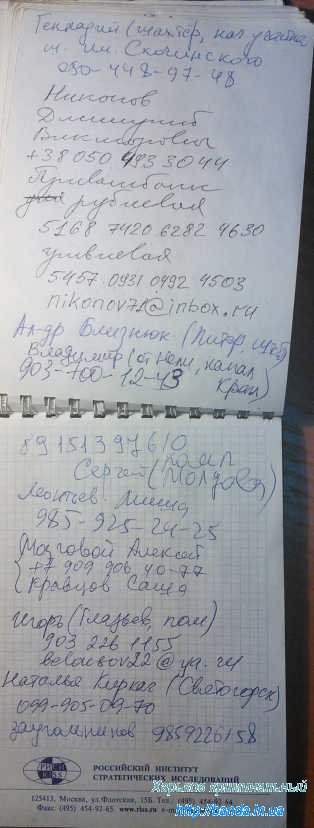 Геннадий (шахтер, нач участка
ш. им. Скочинского
050-448-97-48
Никонов
Дмитрий
Викторович
+38 050 493 30 44
Приватбанк
рублевая
5168 7420 6282 4630
гривневая
5457 0931 0992 4503
nikonov71@inbox.ru
Ал-др Близнюк (Питер,
Владимир (от Нели, канал
903-700-12-43 Крап)
89151397610
Сергей (Молдова)
Леонтьев Миша
985-925-24-25
Мозговой Алексей
+7 909 906 40-77
Кравцов Саша
Игорь (Глазьев, пом)
903 226 1155
belousov22@ya.ru
Наталья Киркач (Святогорск)
099-905-09-70
Заугольников 9859226158
РИСИ
RISS
РОССИЙСКИЙ ИНСТИТУТ
СТРАТЕГИЧЕСКИХ ИССЛЕДОВАНИЙ
125413, Москва, ул.Флотская, 15Б, Тел.: (495) 454-92-64
Факс: (495) 454-92-65 www.riss.ru
Харьков криминальный
http://banda.kh.ua